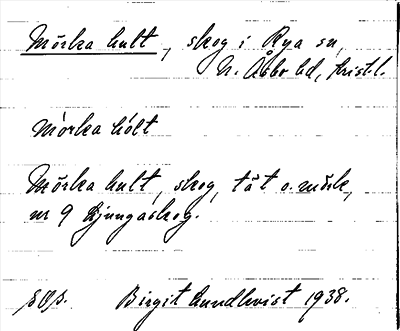 Mörka hult, skog i Rya sn,
N. Åsbo hd, Krist.l.
Mòrka hólt
Mörka hult, skog, tät o. mörk,
nr 9 Ljungaskog.
Birgit Lundkvist 1938.